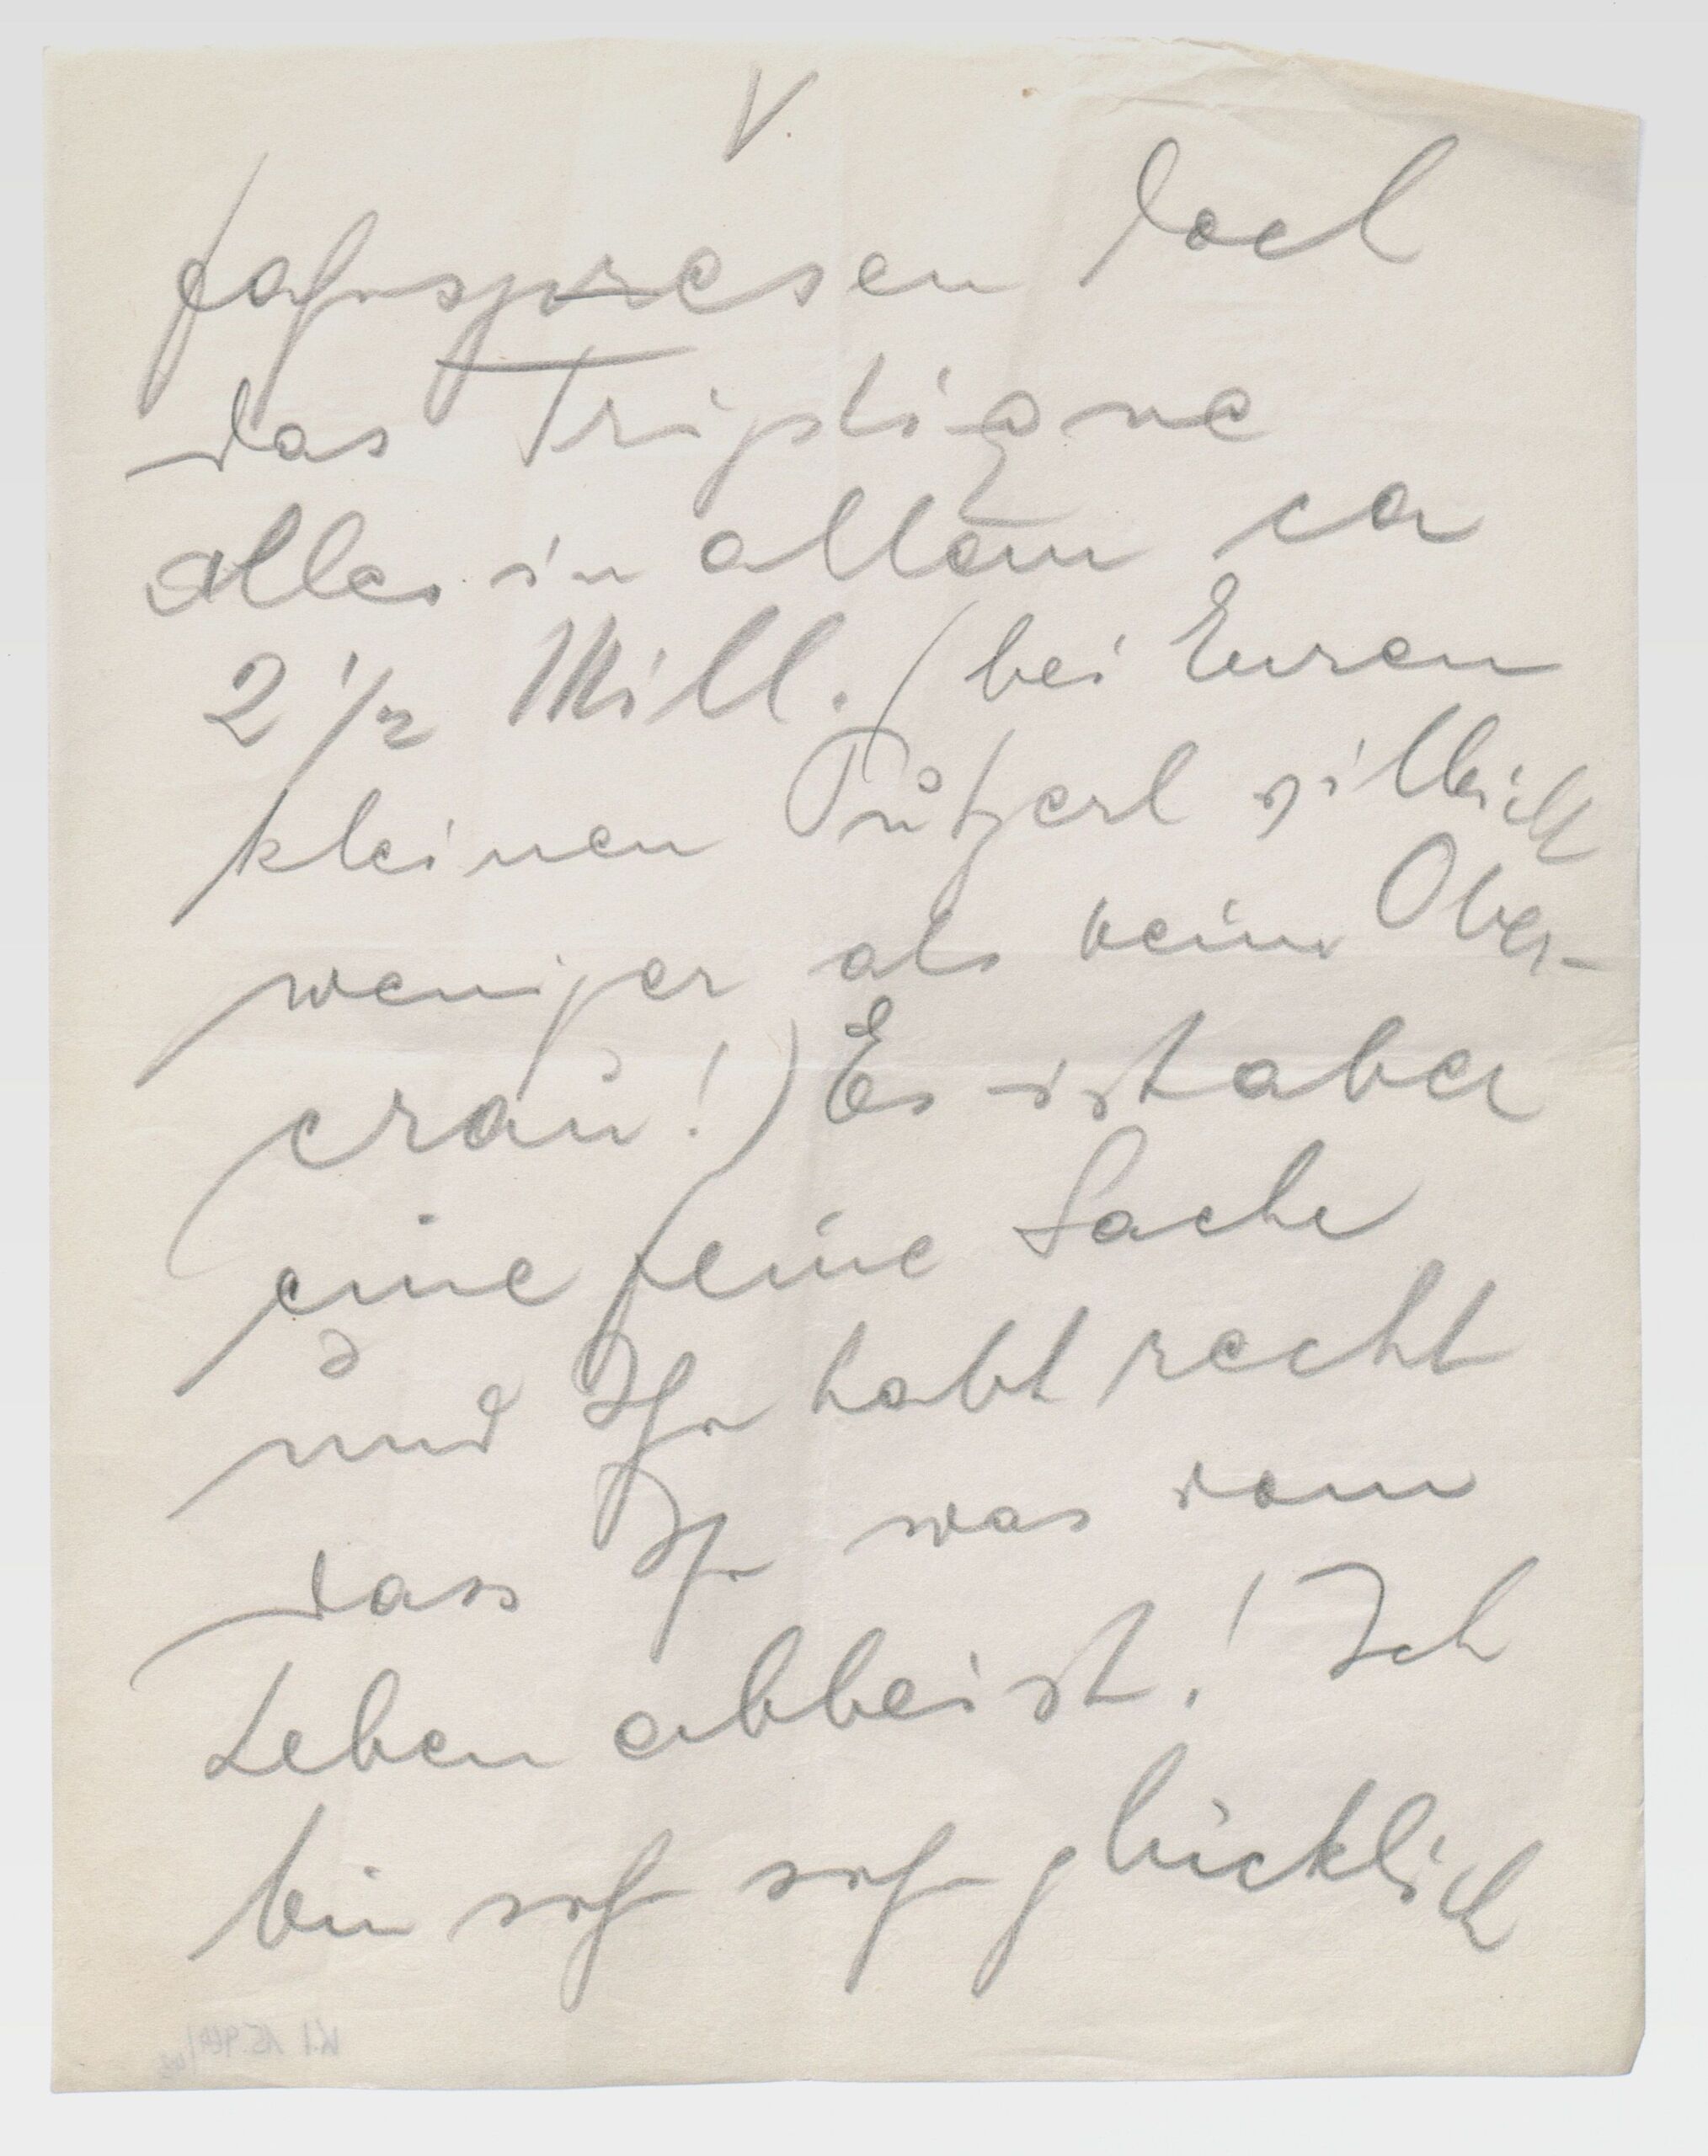 V.
doch
das Triptique
alles in allem ca
2 1/2 Mill. (bei Euren
kleinen Putzerl villeicht
weniger als beim Ober-
crau!) Es ist aber
eine feine Sache
und Ihr habt recht
dass Ihr was vom
Leben abbeist! Ich
bin sehr sehr glücklich